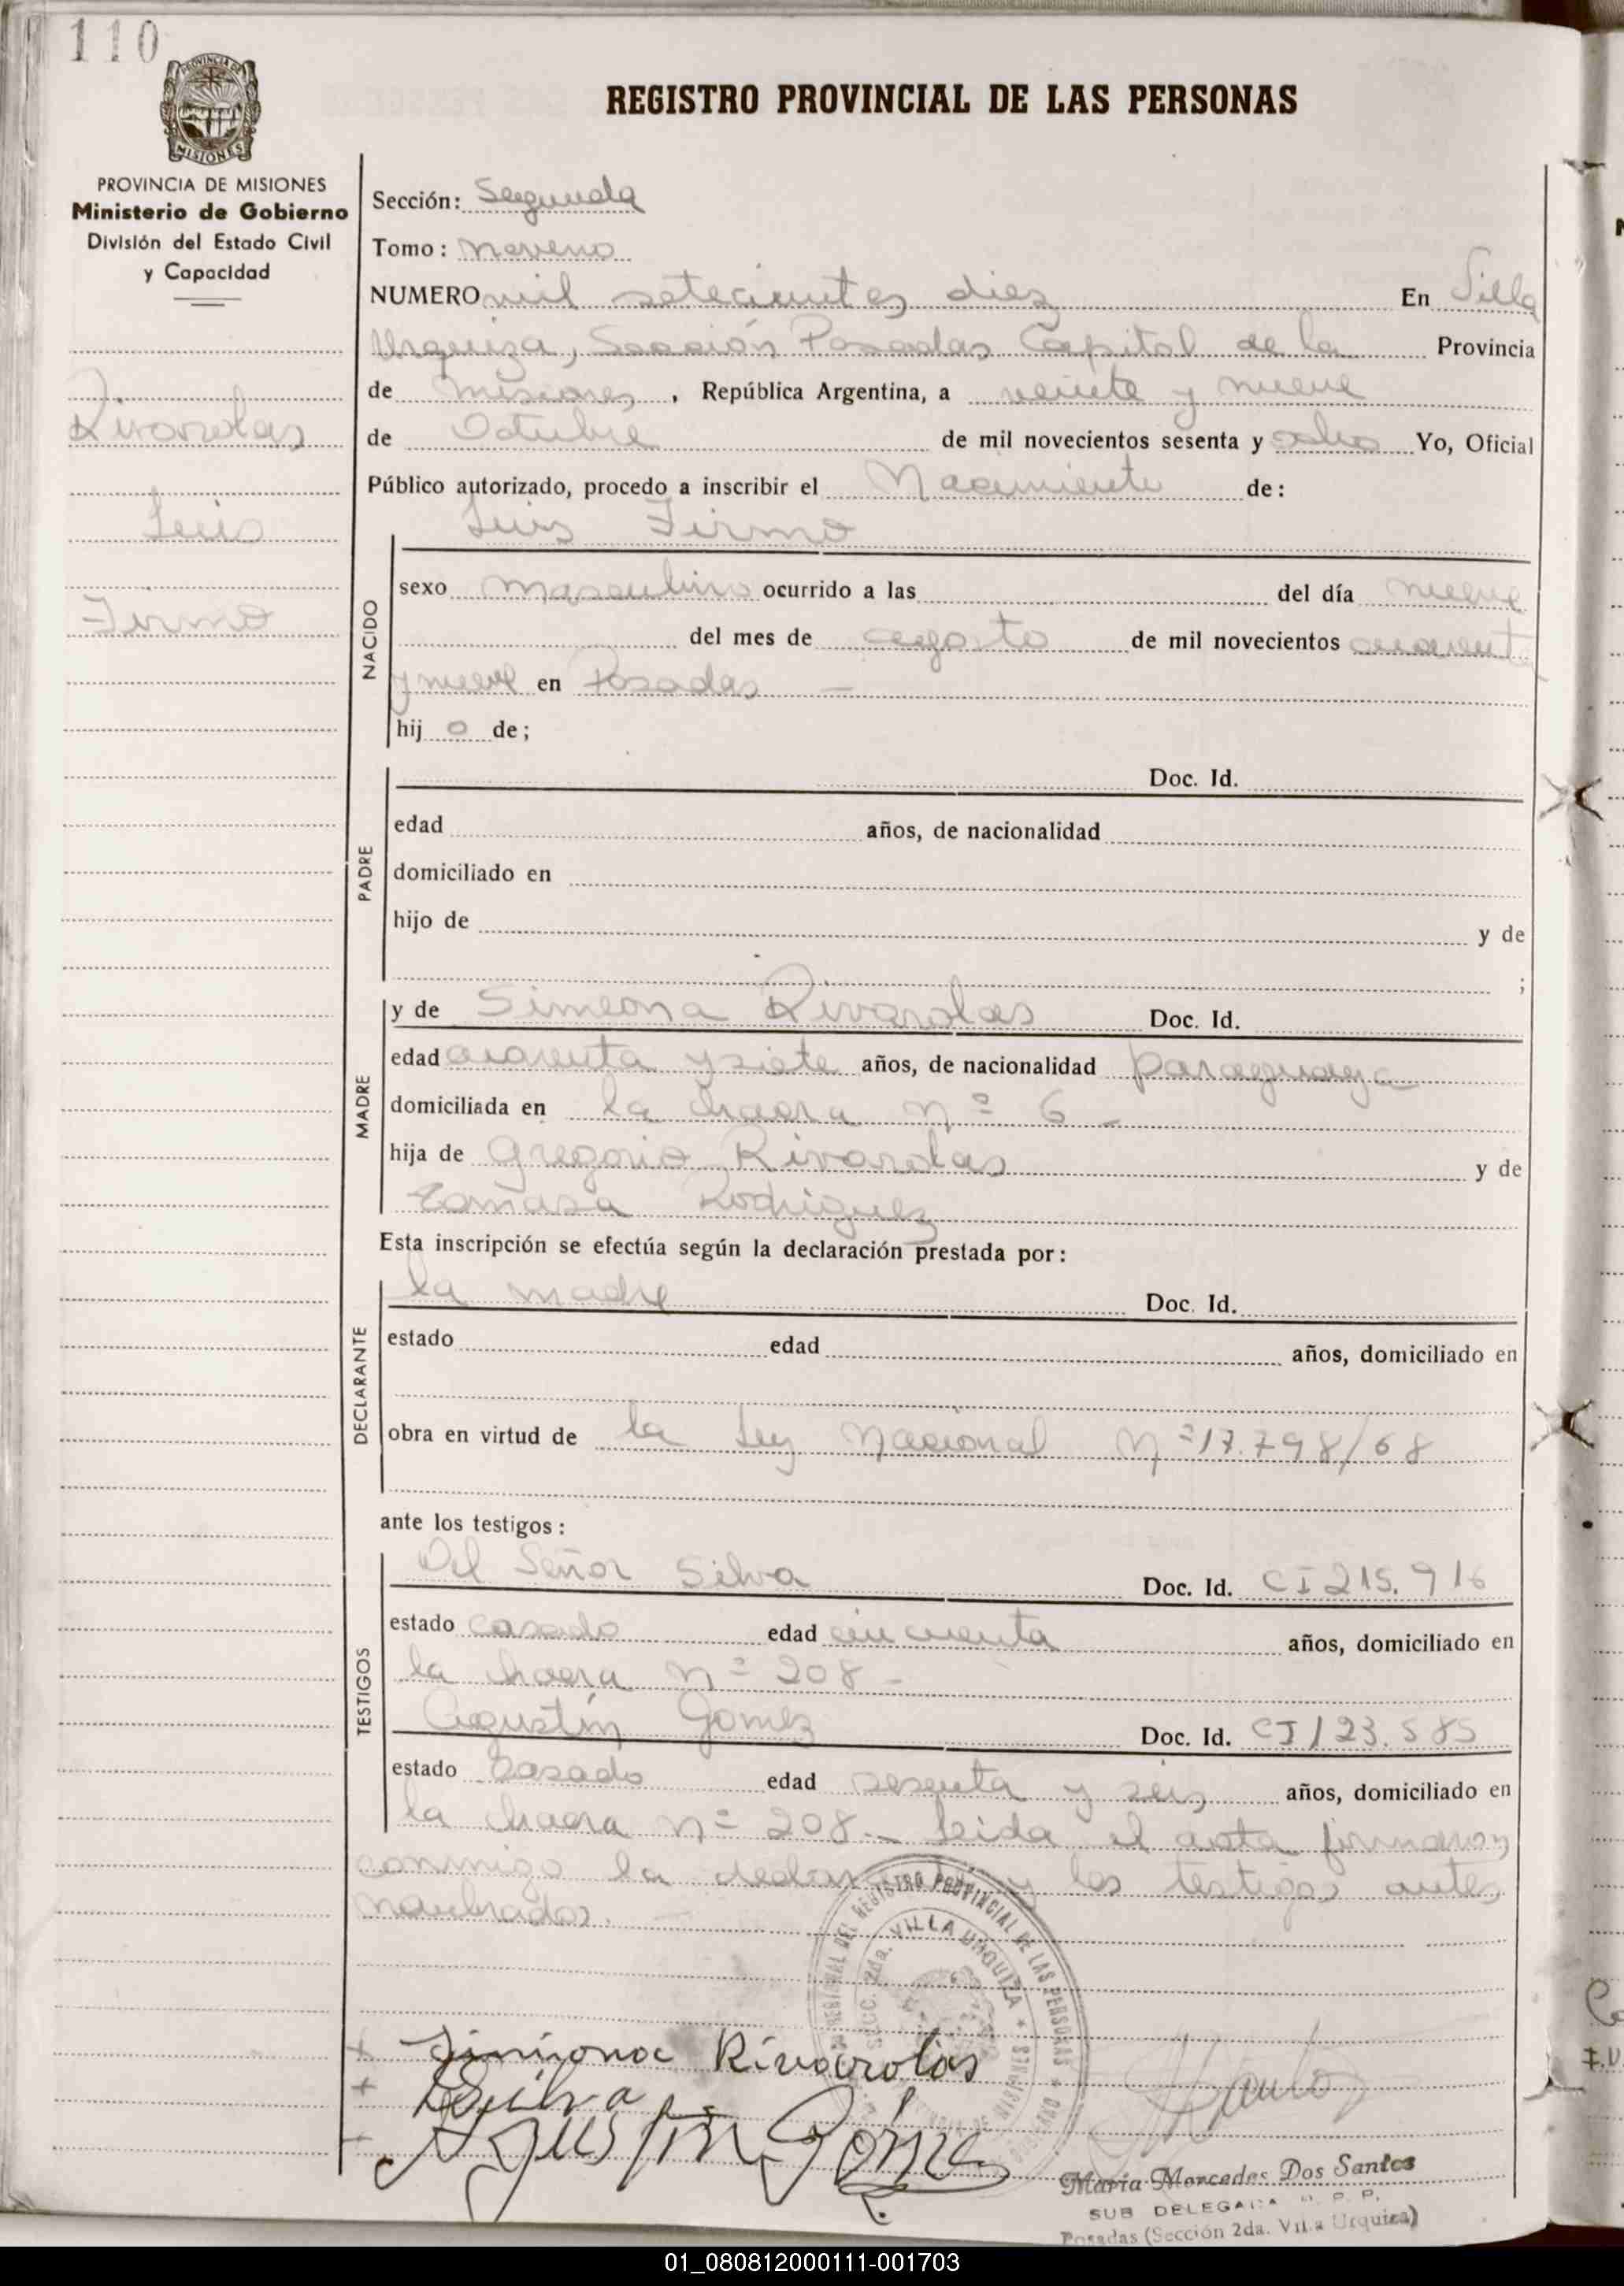 110
PROVINCIA DE
MISIONES
REGISTRO PROVINCIAL DE LAS PERSONAS
PROVINCIA DE MISIONES
Ministerio de Gobierno
División del Estado Civil
y Capacidad
Rivarolas
Luis
Firmo
Sección: Segunda
Tomo: Noveno
NUMERO mil setecientos diez En Villa
Urquiza, Sección Posadas Capital de la Provincia
de Misiones, República Argentina, a veinte y nueve
de Octubre de mil novecientos sesenta y ocho Yo, Oficial
Público autorizado, procedo a inscribir el Nacimiento de:
Luis Firmo
NACIDO
sexo masculino ocurrido a las del día nueve
del mes de agosto de mil novecientos cuarenta
y nueve en Posadas —
hij o de;
PADRE
Doc. Id.
edad años, de nacionalidad
domiciliado en
hijo de y de
;
MADRE
y de Simeona Rivarolas Doc. Id.
edad cuarenta y siete años, de nacionalidad paraguaya
domiciliada en la chacra nº 6 -
hija de Gregorio Rivarolas y de
Tomasa Rodriguez
Esta inscripción se efectúa según la declaración prestada por:
DECLARANTE
la madre Doc. Id.
estado edad años, domiciliado en
obra en virtud de la Ley Nacional Nº 17.798/68
ante los testigos:
TESTIGOS
Del Señor Silva Doc. Id. CI 215.916
estado casado edad cincuenta años, domiciliado en
la chacra nº 208 -
Agustín Gomez Doc. Id. CI 123.585
estado Casado edad sesenta y seis años, domiciliado en
la chacra nº 208.- Leida el acta firmaron
conmigo la declarante y los testigos antes
nombrados. —
REGISTRO PROVINCIAL DE LAS PERSONAS
SECC. 2da. VILLA URQUIZA * MISIONES
Simiona Rivarolas
DSilva
Agustin Gómez
María Mercedes Dos Santos
SUB DELEGADA R. P. P.
Posadas (Sección 2da. Villa Urquiza)
01_080812000111-001703